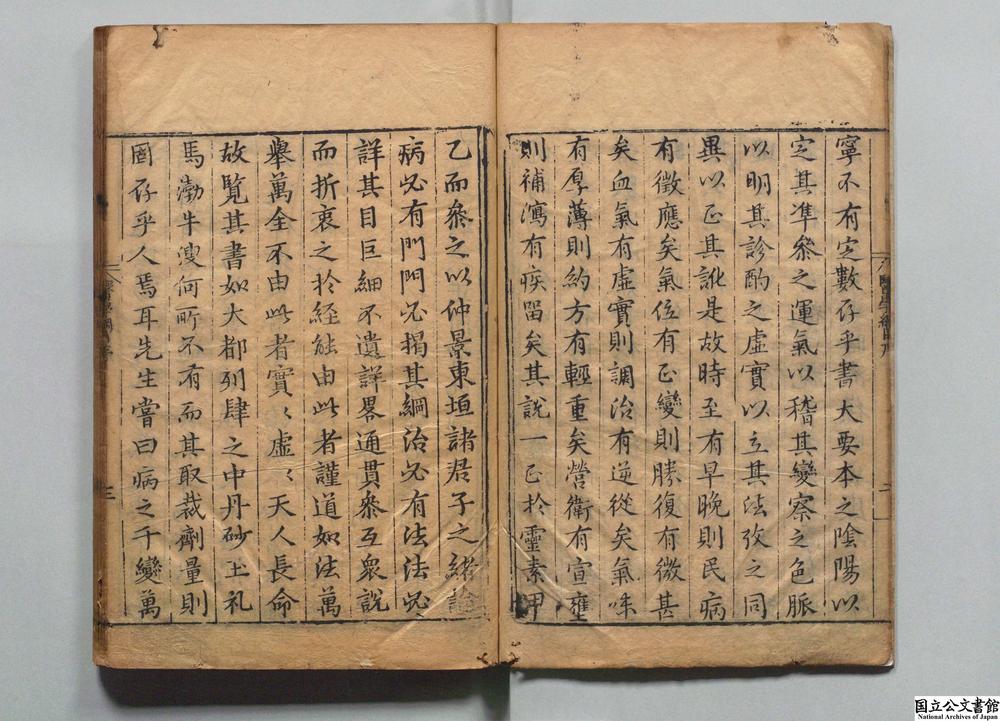 寧不有定數存乎書大要本之陰陽以
定其準叅之運氣以稽其變察之色脈
以明其診酌之虛實以立其法攷之同
異以正其訛是故時至有早晚則民病
有徵應矣氣位有正變則勝復有微甚
矣血氣有虛實則調治有逆從矣氣味
有厚薄則約方有輕重矣營衛有宣壅
則補瀉有疾留矣其說一正於靈素甲
乙而叅之以仲景東垣諸君子之緒論
病必有門門必揭其綱治必有法法必
詳其目巨細不遺詳畧通貫叅互衆說
而折衷之於経能由此者謹道如法萬
舉萬全不由此者實〻虛〻天人長命
故覽其書如大都列肆之中丹砂玉札
馬渤牛溲何所不有而其取裁劑量則
固存乎人焉耳先生嘗曰病之千變萬
醫學綱目序
二
三
国立公文書館
National Archives of Japan